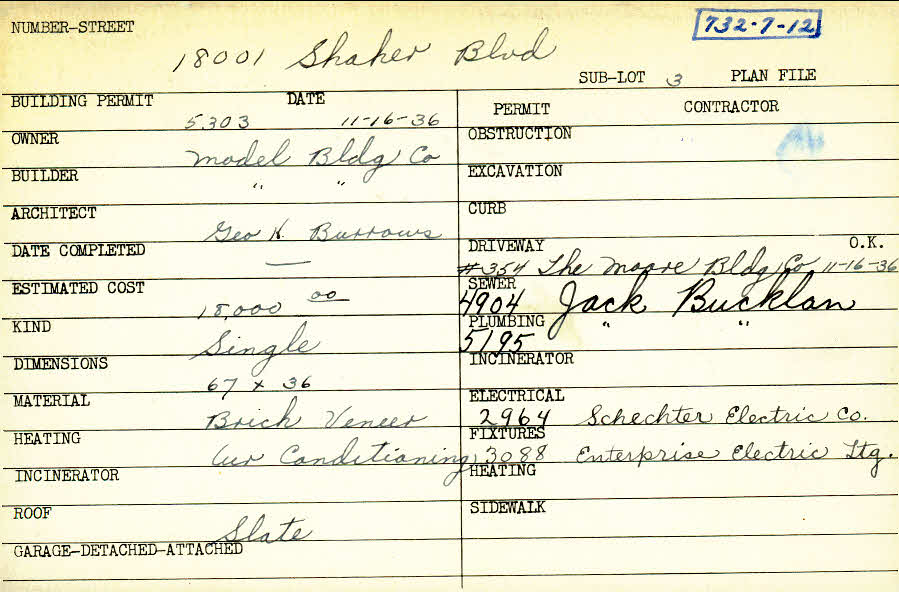 NUMBER-STREET
732-7-12
18001 Shaker Blvd
SUB-LOT 3 PLAN FILE
BUILDING PERMIT DATE
5303 11-16-36
OWNER
Model Bldg Co
BUILDER
" "
ARCHITECT
Geo H. Burrows
DATE COMPLETED
—
ESTIMATED COST
18,000 00
KIND
Single
DIMENSIONS
67 x 36
MATERIAL
Brick Veneer
HEATING
Air Conditioning
INCINERATOR
ROOF
Slate
GARAGE-DETACHED-ATTACHED
PERMIT CONTRACTOR
OBSTRUCTION
EXCAVATION
CURB
DRIVEWAY O.K.
#354 The Moore Bldg Co 11-16-36
SEWER
4904 Jack Bucklan
PLUMBING " "
5195
INCINERATOR
ELECTRICAL
2964 Schechter Electric Co.
FIXTURES
3088 Enterprise Electric Ltg.
HEATING
SIDEWALK